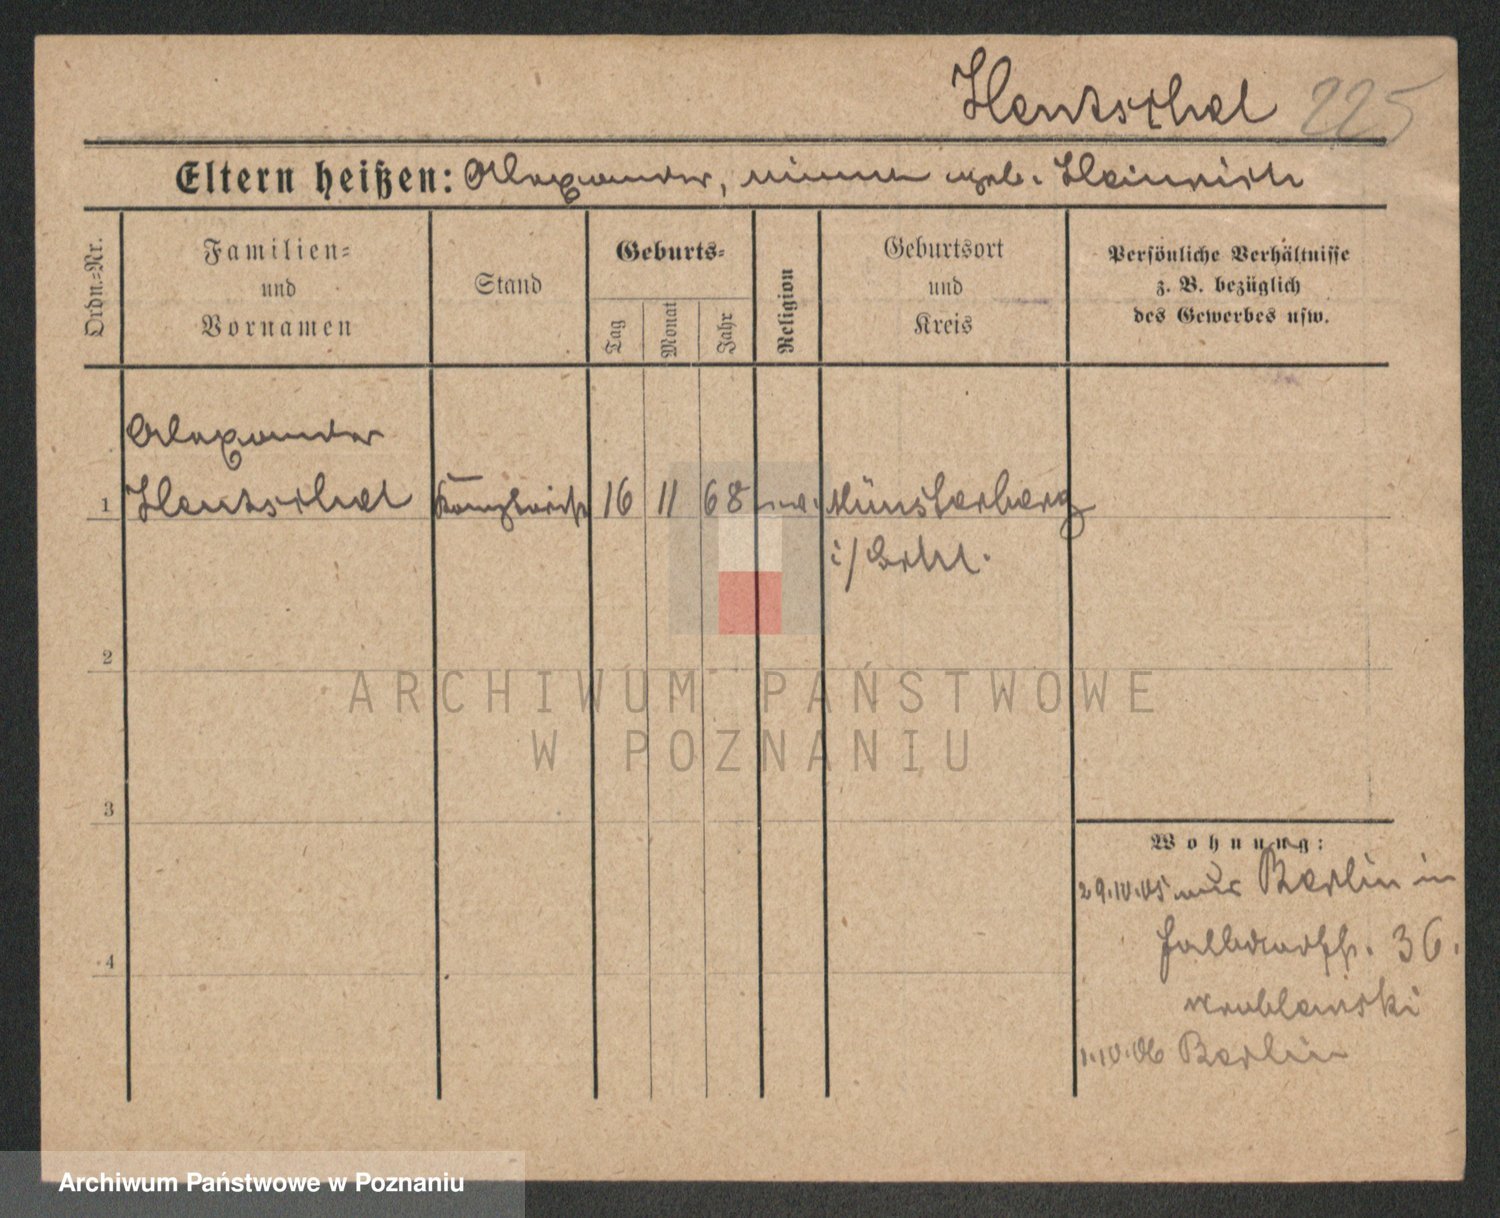 Hentschel 225
Eltern heißen: Alexander, geb. Heinrich
Ordn.-Nr.
Familien-
und
Vornamen
Stand
Geburts-
Tag
Monat
Jahr
Religion
Geburtsort
und
Kreis
Persönliche Verhältnisse
z. B. bezüglich
des Gewerbes usw.
Alexander
1 Hentschel 16 11 68 Münsterberg
i/Schl.
2
3
4
Wohnung:
29.10.05 aus Berlin in
36.
1.10.06 Berlin
ARCHIWUM PAŃSTWOWE
W POZNANIU
Archiwum Państwowe w Poznaniu